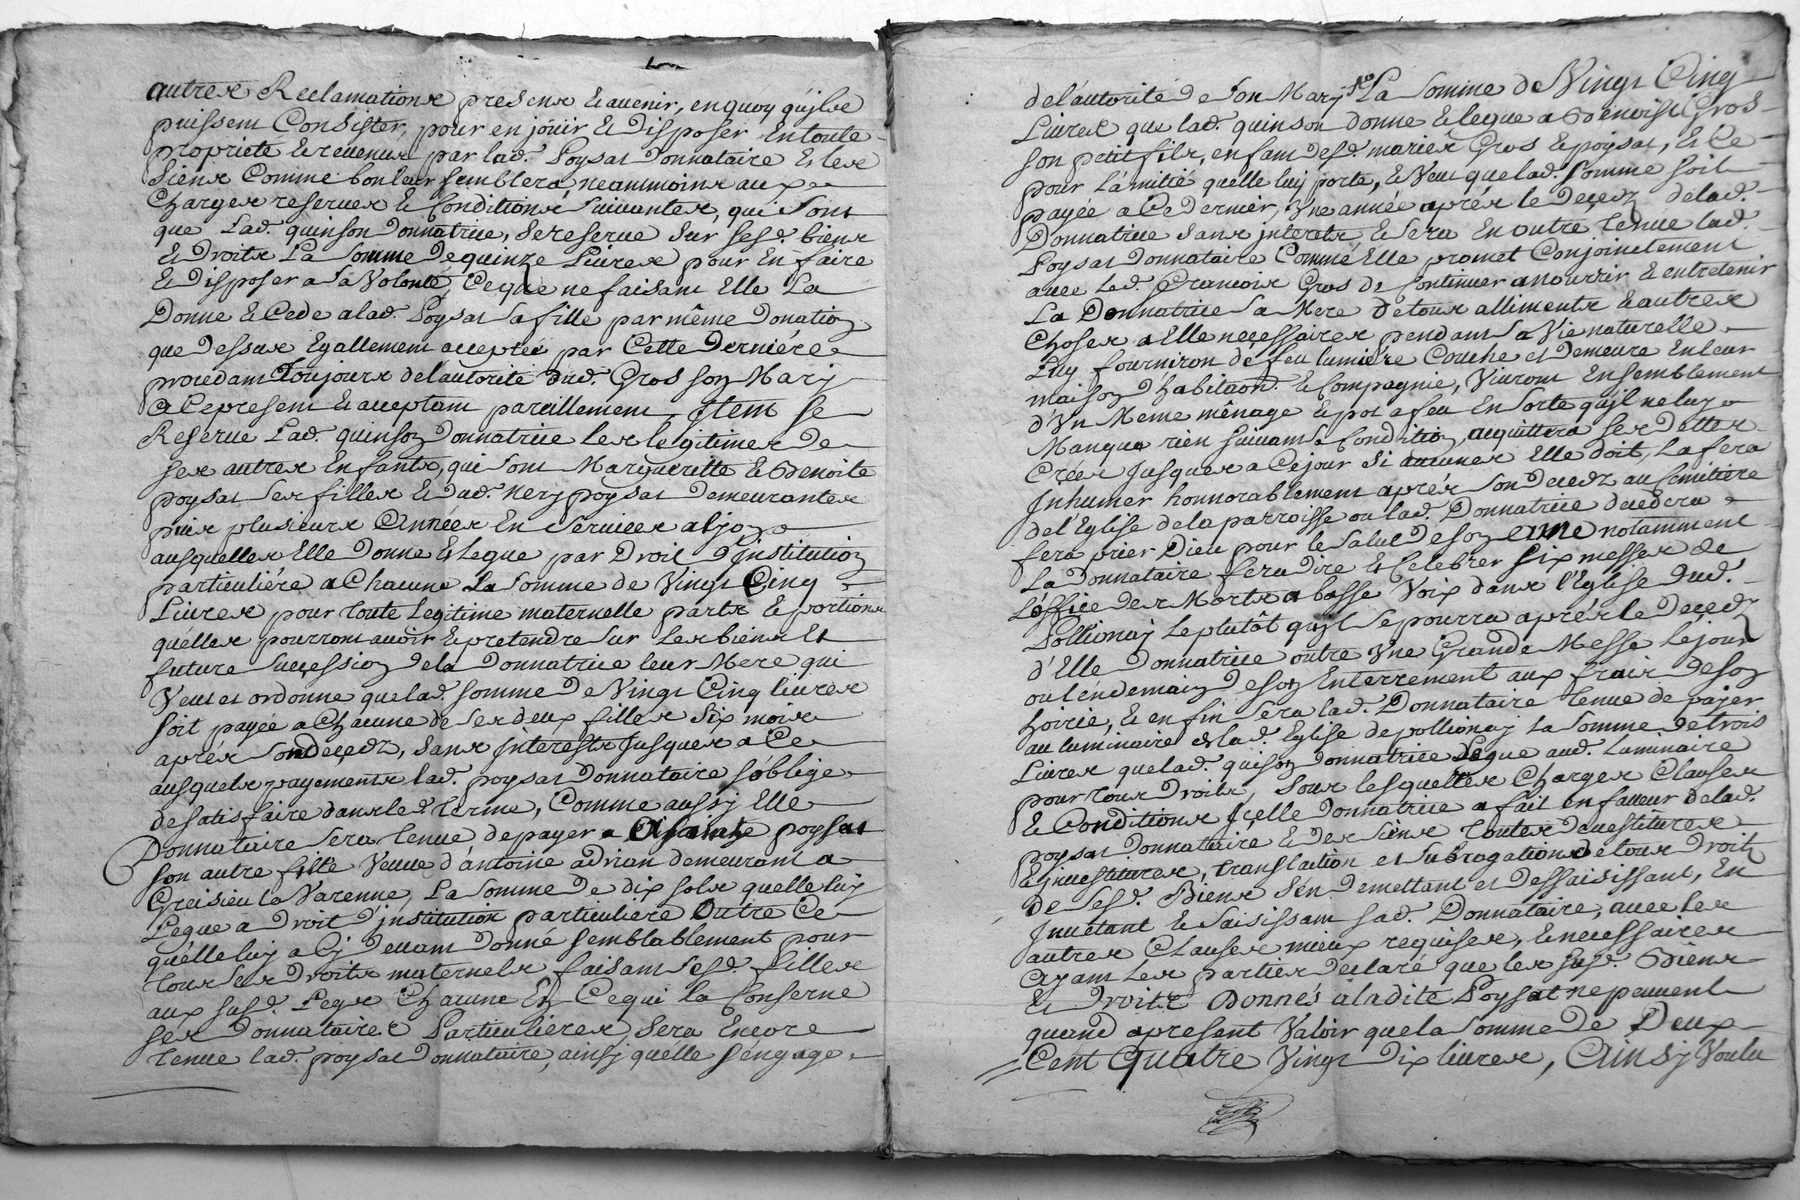 autres Reclamations presens & avenir, en quoy qu'ils
puissent Consister, pour en joüir & Disposer En toute
proprieté & revenus par lad. Poysat Donnataire & les
Siens Comme bon leur semblera, neanmoins aux
Charges reserves & Conditions Suivantes, qui sont
que Lad. quinson Donnatrice, Se reserve Sur sesd. biens
& Droits La somme De quinze Livres pour En faire
& Disposer a Sa Volonté, Ce que ne faisant Elle La
Donne & Cede a lad. Poysat sa fille par même Donation
que Dessus Egallement acceptée par Cette Derniére
procedant Toujours de l'autorité dud. Gros son Mary
a Ce present & acceptant pareillement, Item se
Reserve Lad. quinson Donnatrice les legitimes De
ses autres Enfants, qui sont Margueritte & Benoite
poysat ses filles & dud. poysat Demeurantes
puis plusieurs Années En Services a lyon
ausquelles Elle Donne & legue par Droit D'institution
particuliére a Chacune La somme de Vingt Cinq
Livres pour toute Legitime maternelle parts & portions
qu'elles pourront avoir & pretendre Sur Les biens Et
future Succession De la Donnatrice leur Mere qui
Veut et ordonne que lad. somme De Vingt Cinq livres
soit payée a Chacune de Ses deux filles Six mois
aprés son decedz, Sans Interests Jusques a Ce
ausquels payements lad. poysat Donnataire s'oblige
de satisfaire dans led. terme, Comme aussy Elle
Donnataire Sera tenue de payer a poysat
son autre fille Veuve d'antoine adrian demeurant a
Greisieu la Varenne, La somme De dix sols quelle luy
Legue a Droit d'institution particuliére Outre Ce
qu'elle luy a Cy devant Donné semblablement pour
tous ses Droits maternels, faisant sesd. filles
aux susd. Legs Chacune En Ce qui la Conserne
ses Donnataires Particulieres, Sera Encore
tenue lad. poysat Donnataire, ainsy qu'elle s'engage
del'autorité De son Mary La somme de Vingt Cinq
Livres que lad. quinson donne & legue a Benoist Gros
son petit fils, enfant desd. mariés Gros & poysat, & Ce
pour l'amitié quelle luy porte, & Veut que lad. somme soit
payée a Ce Dernier, Une année aprés le Decedz de lad.
Donnatrice Sans interets & Sera En outre tenue lad.
Poysat Donnataire Comme Elle promet Conjointement
avec led. Francois Gros de Continuer a nourrir & entretenir
La Donnatrice sa Mere de tous alliments & autres
Choses a Elle necessaires pendant sa Vie naturelle
Luy fourniron de feu lumiére Couche et Demeure En leur
maison D'habitaon. & Compagnie, Vivront Ensemblement
d'Un Meme mênage & pot a feu En sorte qu'il ne luy
Manque rien suivant Sa Condition, acquittera ses Dettes
Crées Jusques a Ce jour Si aucunes Elle doit, La fera
Inhumer honnorablement aprés son Decedz au Cemitiere
de l'Eglise de la parroisse ou lad. Donnatrice decedera
fera prier Dieu pour le Salut De son ame notamment
La Donnataire fera Dire & Celebrer Six messes de
L'office des Morts a basse Voix dans l'Eglise dud.
Pollionay le plutôt qu'il Se pourra aprés le Decedz
d'Elle Donnatrice outre Une Grande Messe le jour
ou lendemain De son Enterrement aux frais De son
hoirie, & en fin Sera lad. Donnataire tenue de payer
au luminaire de lad. Eglise de pollionay La somme De trois
Livres que lad. quison Donnatrice Legue aud. Luminaire
pour tous Droits, Sous lesquelles Charges Clauses
& Conditions Icelle Donnatrice a fait en faveur de lad.
poysat Donnataire & des Siens toutes Devestitures
& investitures, translation et subrogation De tous Droits
De sesd. Biens S'en Demettant et Dessaisissant, En
Invetant & Saisissant sad. Donnataire, avec les
autres Clauses mieux requises, & necessaires
Ayant les parties declaré que les susd. Biens
& Droits Donnés a ladite Poysat ne peuvent
quand apresent Valoir que la somme De Deux
Cent Quatre Vingt Dix livres, Ainsy Voulu